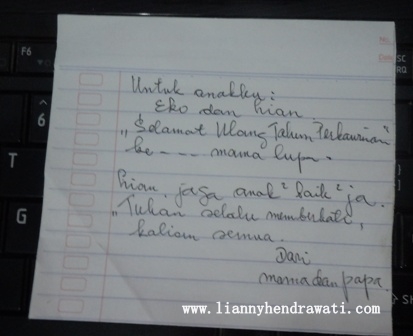 Untuk anakku :
Eko dan Lian
"Selamat Ulang Tahun Perkawinan"
ke - - - - mama lupa.
Lian, jaga anak² baik² ya.
"Tuhan selalu memberkati,
kalian semua.
Dari
mama dan papa.
www.liannyhendrawati.com
No.
F6
6
T
G